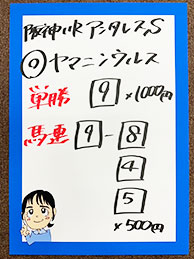 阪神11R アンタレスS
◎ヤマニンウルス
単勝 9 ×1000円
馬連 9-8
4
5
×500円